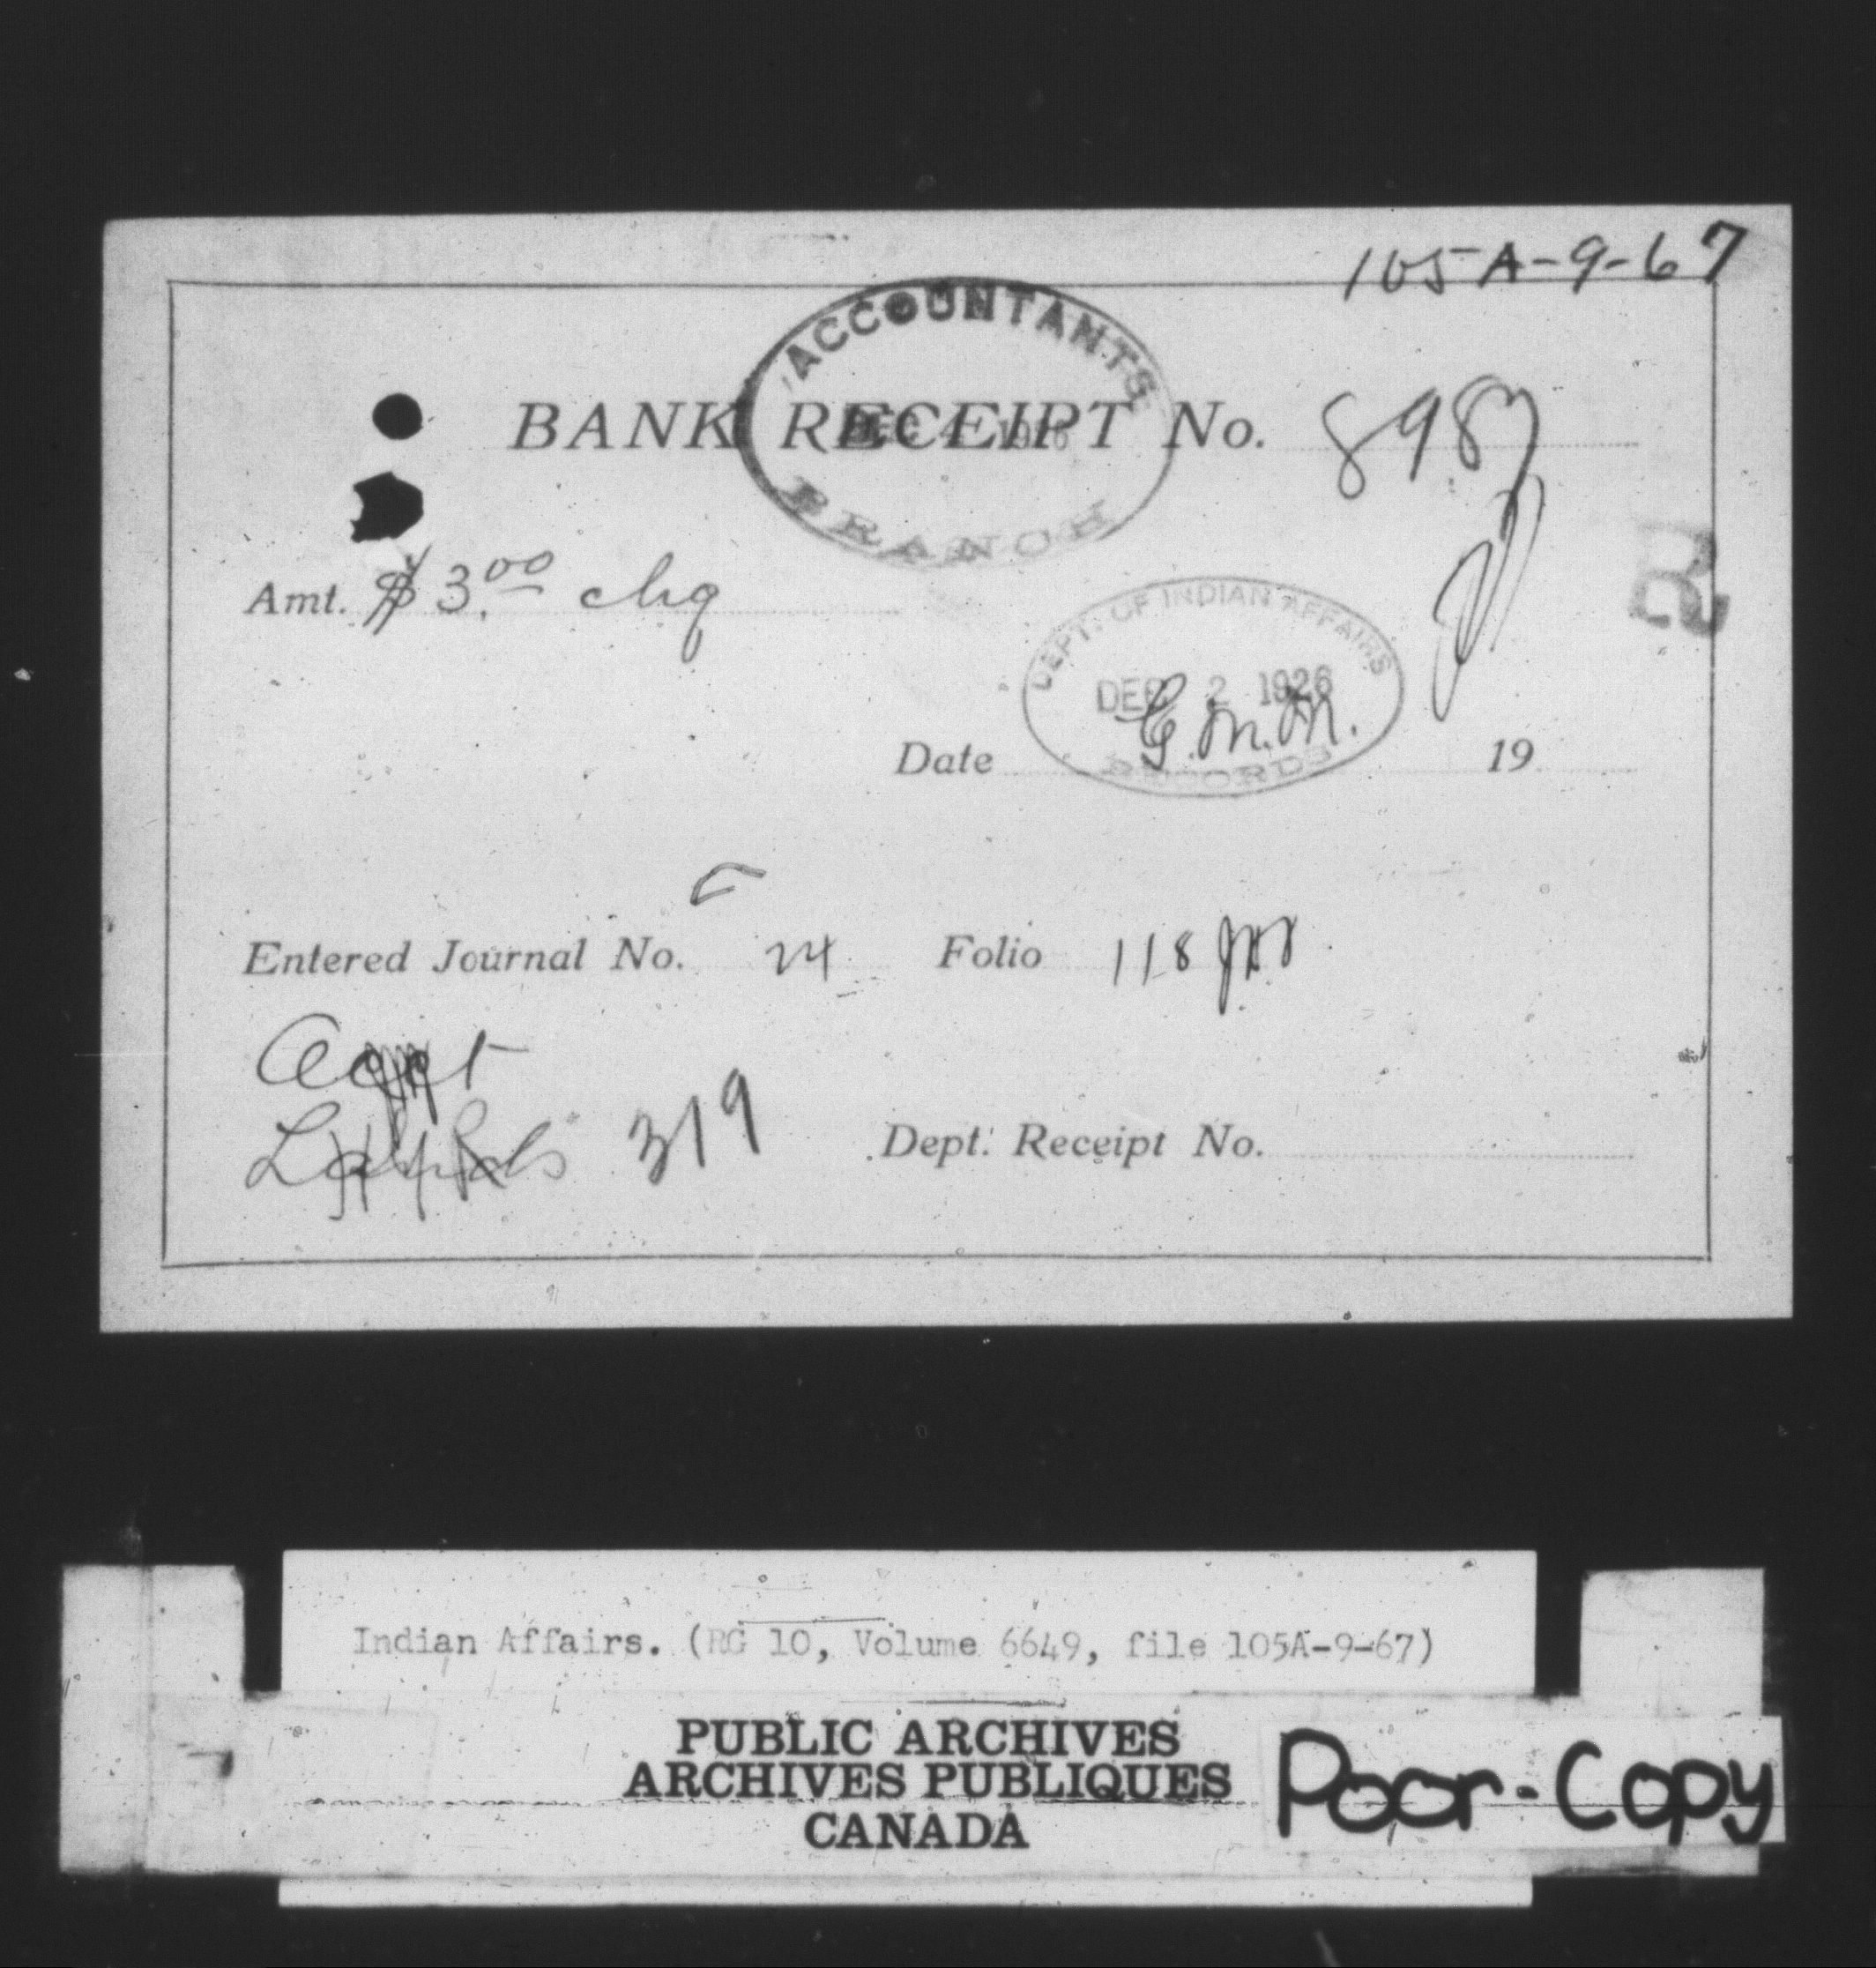 105A-9-67
ACCOUNTANTS
BANK RECEIPT No. 8987
DEC 1926
BRANCH
Amt. $3.00 chq
R
DEPT. OF INDIAN AFFAIRS
DEC 2 1926
G.M.M.
Date 19
RECORDS
Entered Journal No. 24 Folio 118
Acct
Lands 319
Dept. Receipt No.
Indian Affairs. (RG 10, Volume 6649, file 105A-9-67)
PUBLIC ARCHIVES
ARCHIVES PUBLIQUES
CANADA
Poor-Copy